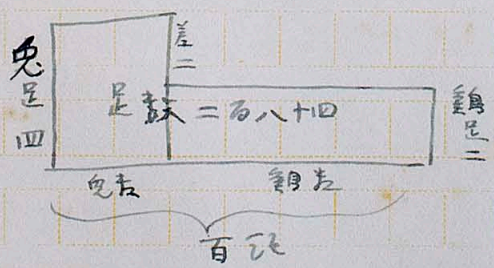 兎足四
差二
足数=百八十四
鶏足二
兎数
鶏数
百